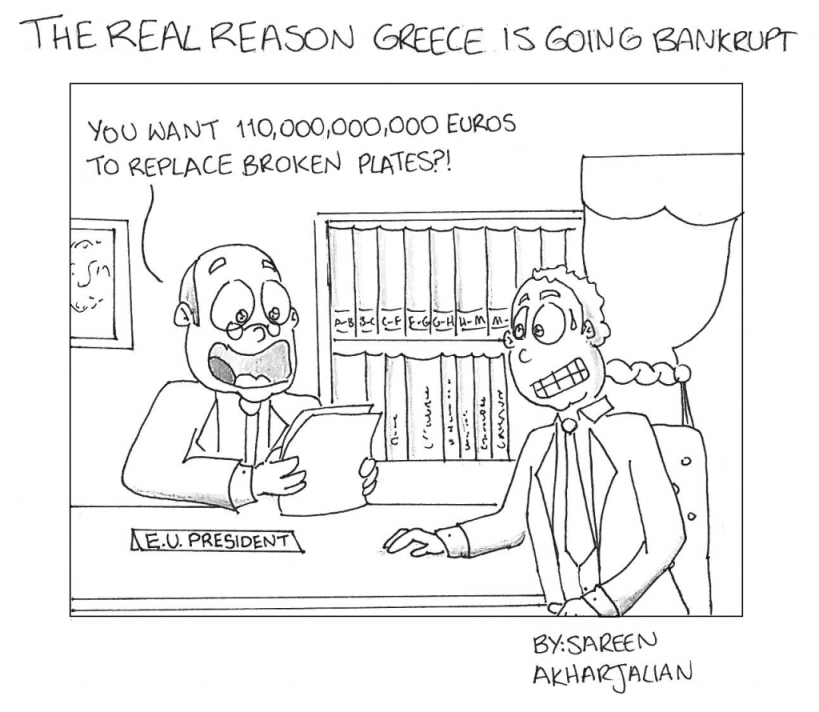 THE REAL REASON GREECE IS GOING BANKRUPT
YOU WANT 110,000,000,000 EUROS
TO REPLACE BROKEN PLATES?!
A-B
B-C
C-F
F-G
G-H
H-M
M-
E.U. PRESIDENT
BY: SAREEN
AKHARJALIAN